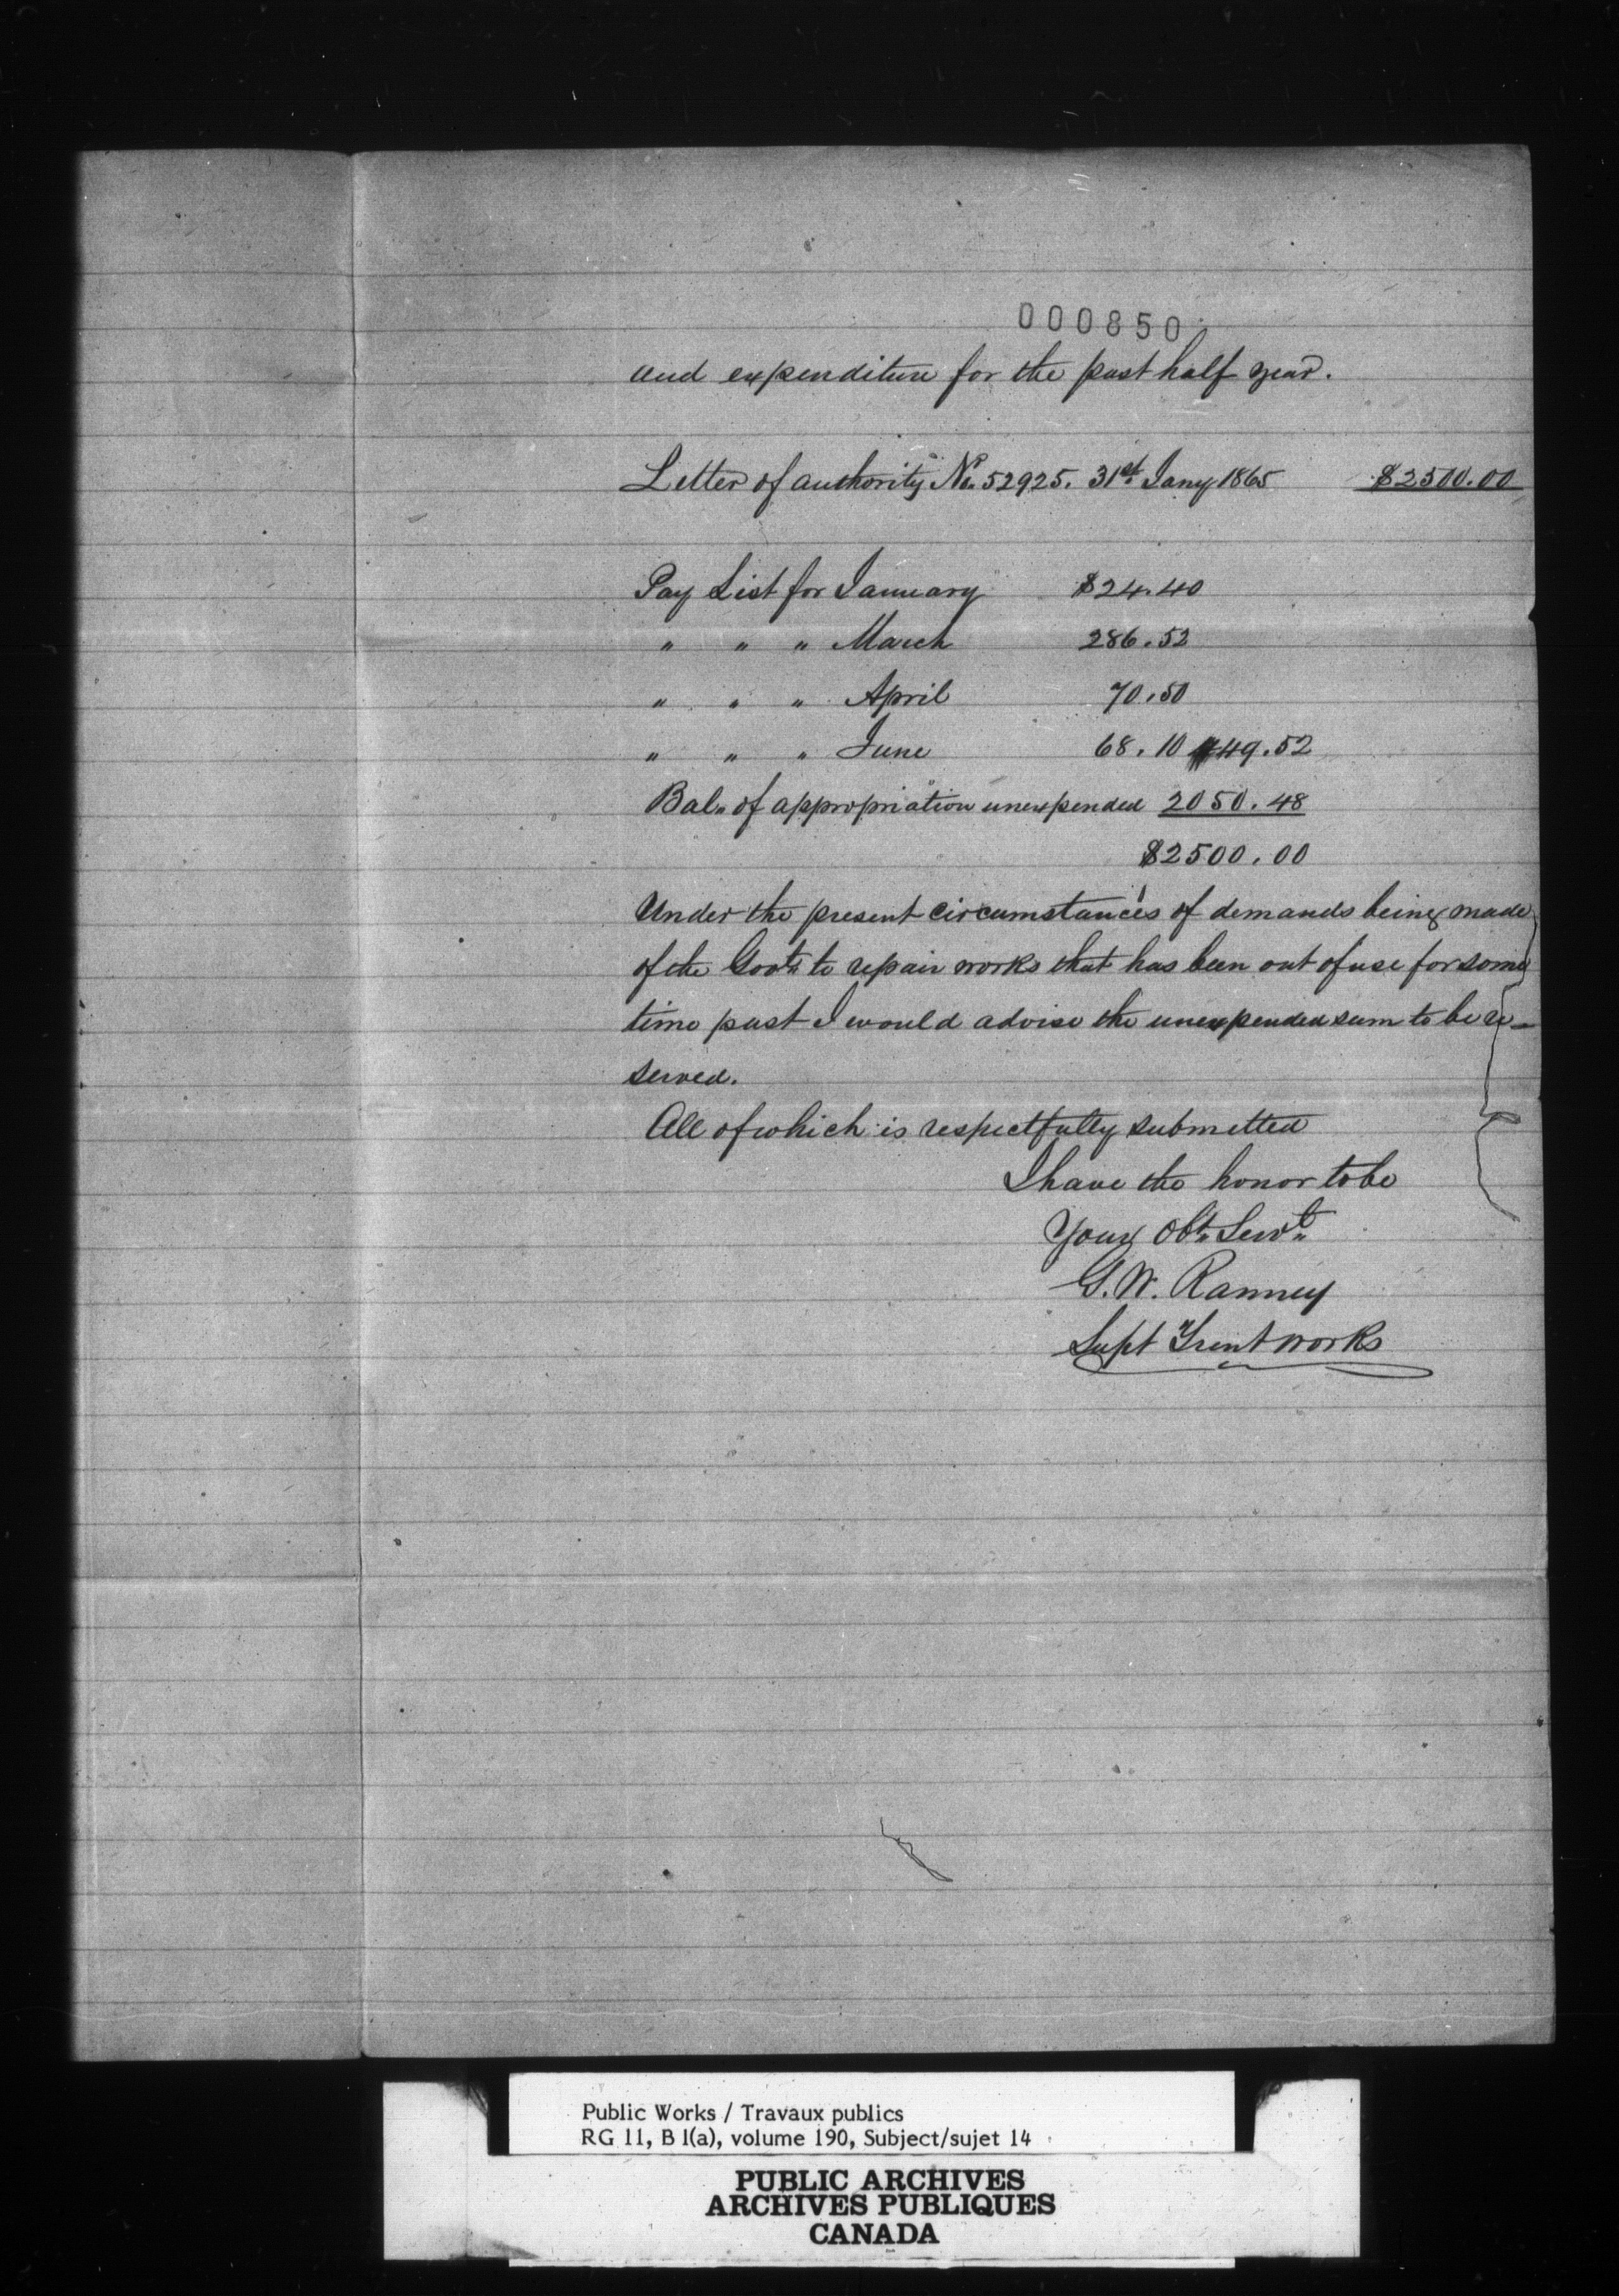 000850
and expenditure for the past half year.
Letter of authority No. 52925. 31st Jany 1865 $2500.00
Pay List for January $24.40
" " " March 286.52
" " " April 70.50
" " " June 68.10 449.52
Bal. of appropriation unexpended 2050.48
$2500.00
Under the present circumstances of demands being made
of the Govt. to repair works that has been out of use for some
time past I would advise the unexpended sum to be re-
served.
All of which is respectfully submitted
I have the honor to be
Your Obt. Servt.
G. W. Ranney
Supt Trent works
Public Works / Travaux publics
RG 11, B 1(a), volume 190, Subject/sujet 14
PUBLIC ARCHIVES
ARCHIVES PUBLIQUES
CANADA